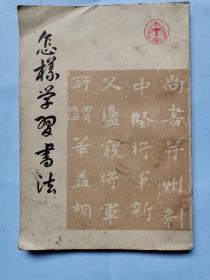 怎樣学習書法
尚書并州刺
中堅將軍新
父盪寇將軍
所謂華盖相